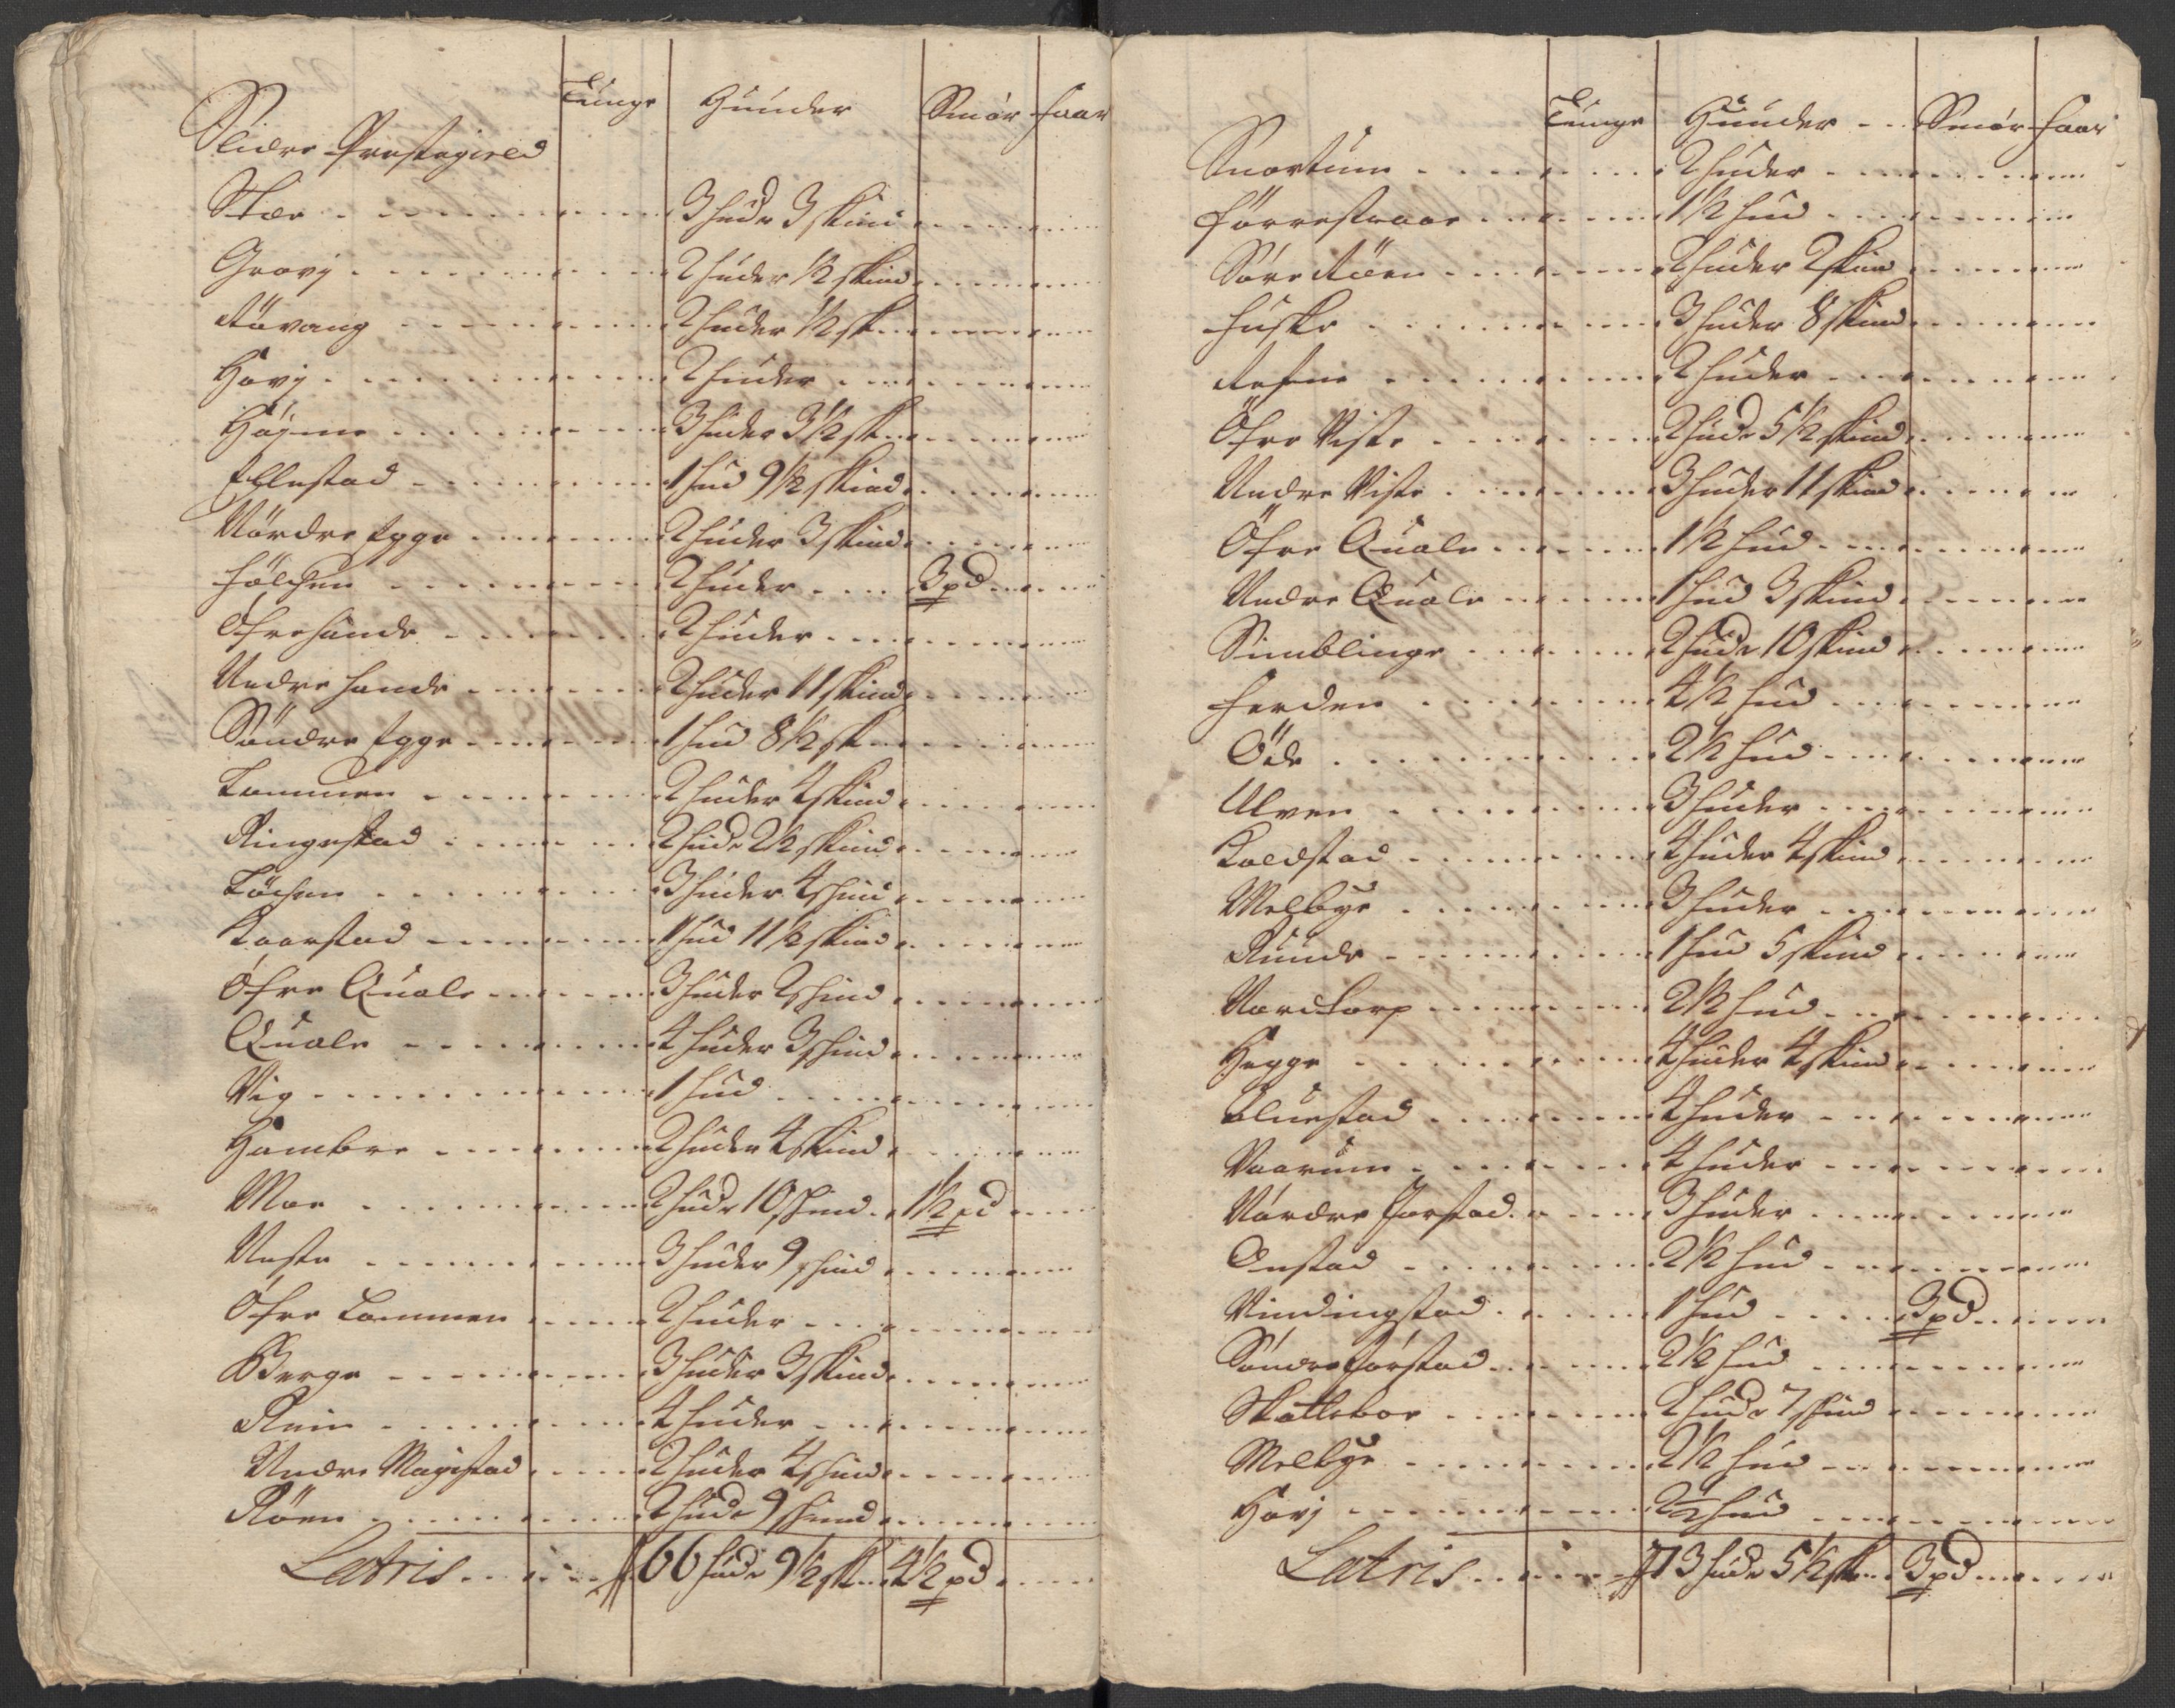 Tunge Huuder Smør faar
Slidre Præstegield
Kar . . . 3 hudr 3 skind
Gravj . . . 2 huder ½ skind
Røvang . . . 2 huder ½ sk
Havj . . . 2 huder
Højme . . . 3 huder 3½ sk
Ellestad . . . 1 hud 9½ skind
Nørdre Egge . . . 2 huder 3 skind
hølchen . . . 2 huder . . . 3 pd
Øfre hande . . . 2 huder
Nedre hande . . . 2 huder 11 skind
Søndre Egge . . . 1 hud 8½ sk
Lommen . . . 2 huder 4 skind
Ringestad . . . 2 hudr 2½ skind
Løchen . . . 3 huder 4 skind
Kaarstad . . . 1 hud 11½ skind
Øfre Quale . . . 3 huder 2 skind
Quale . . . 4 huder 3 skind
Vig . . . 1 hud
Hambre . . . 2 huder 4 skind
Moe . . . 2 hudr 10 skind . . 1½ pd
Neste . . . 3 huder 9 skind
Øfre Lommen . . . 2 huder
Berge . . . 3 huder 3 skind
Rein . . . 4 huder
Nedre Magistad . . . 2 huder 4 skind
Røen . . . 2 hudr 9 skind
Latris . . . 66 hudr 9½ sk . . 4½ pd
Tunge Huuder Smør faar
Snortum . . . 2 huder
førrestraae . . . 1½ hud
Søre Røen . . . 2 huder 2 skind
huske . . . 3 huder 8 skind
Refne . . . 2 huder
Øfre Viste . . . 2 hudr 5½ skind
Nedre Viste . . . 3 huder 11 skind
Øfre Quale . . . 1½ hud
Nedre Quale . . . 1 hud 3 skind
Simblinge . . . 2 hudr 10 skind
harden . . . 4½ hud
Øde . . . 2½ hud
Ulven . . . 3 huder
Koldstad . . . 4 huder 4 skind
Melbye . . . 3 huder
Runde . . . 1 hud 5 skind
Nordtorp . . . 2½ hud
Hegge . . . 4 huder 4 skind
Bluestad . . . 4 huder
Naarum . . . 4 huder
Nørdre Jarstad . . . 3 huder
Onstad . . . 2½ hud
Vindingstad . . . 1 hud . . . 3 pd
Søndre Jørstad . . . 2½ hud
Skatteboe . . . 2 hudr 7 skind
Melbye . . . 2½ hud
Havj . . . 2½ hud
Latris . . . 73 hudr 5½ sk . . 3 pd